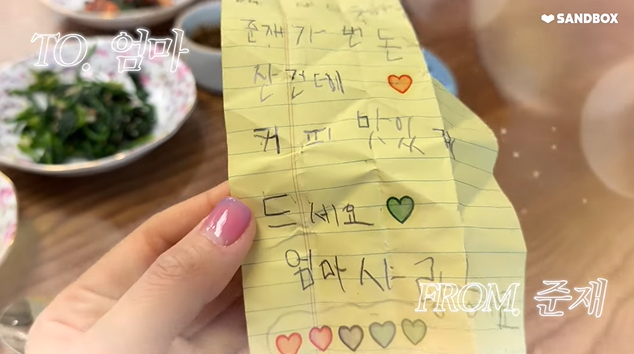 SANDBOX
TO. 엄마
준재가 번 돈
커피 맛있게
드세요
엄마 사랑
FROM. 준재